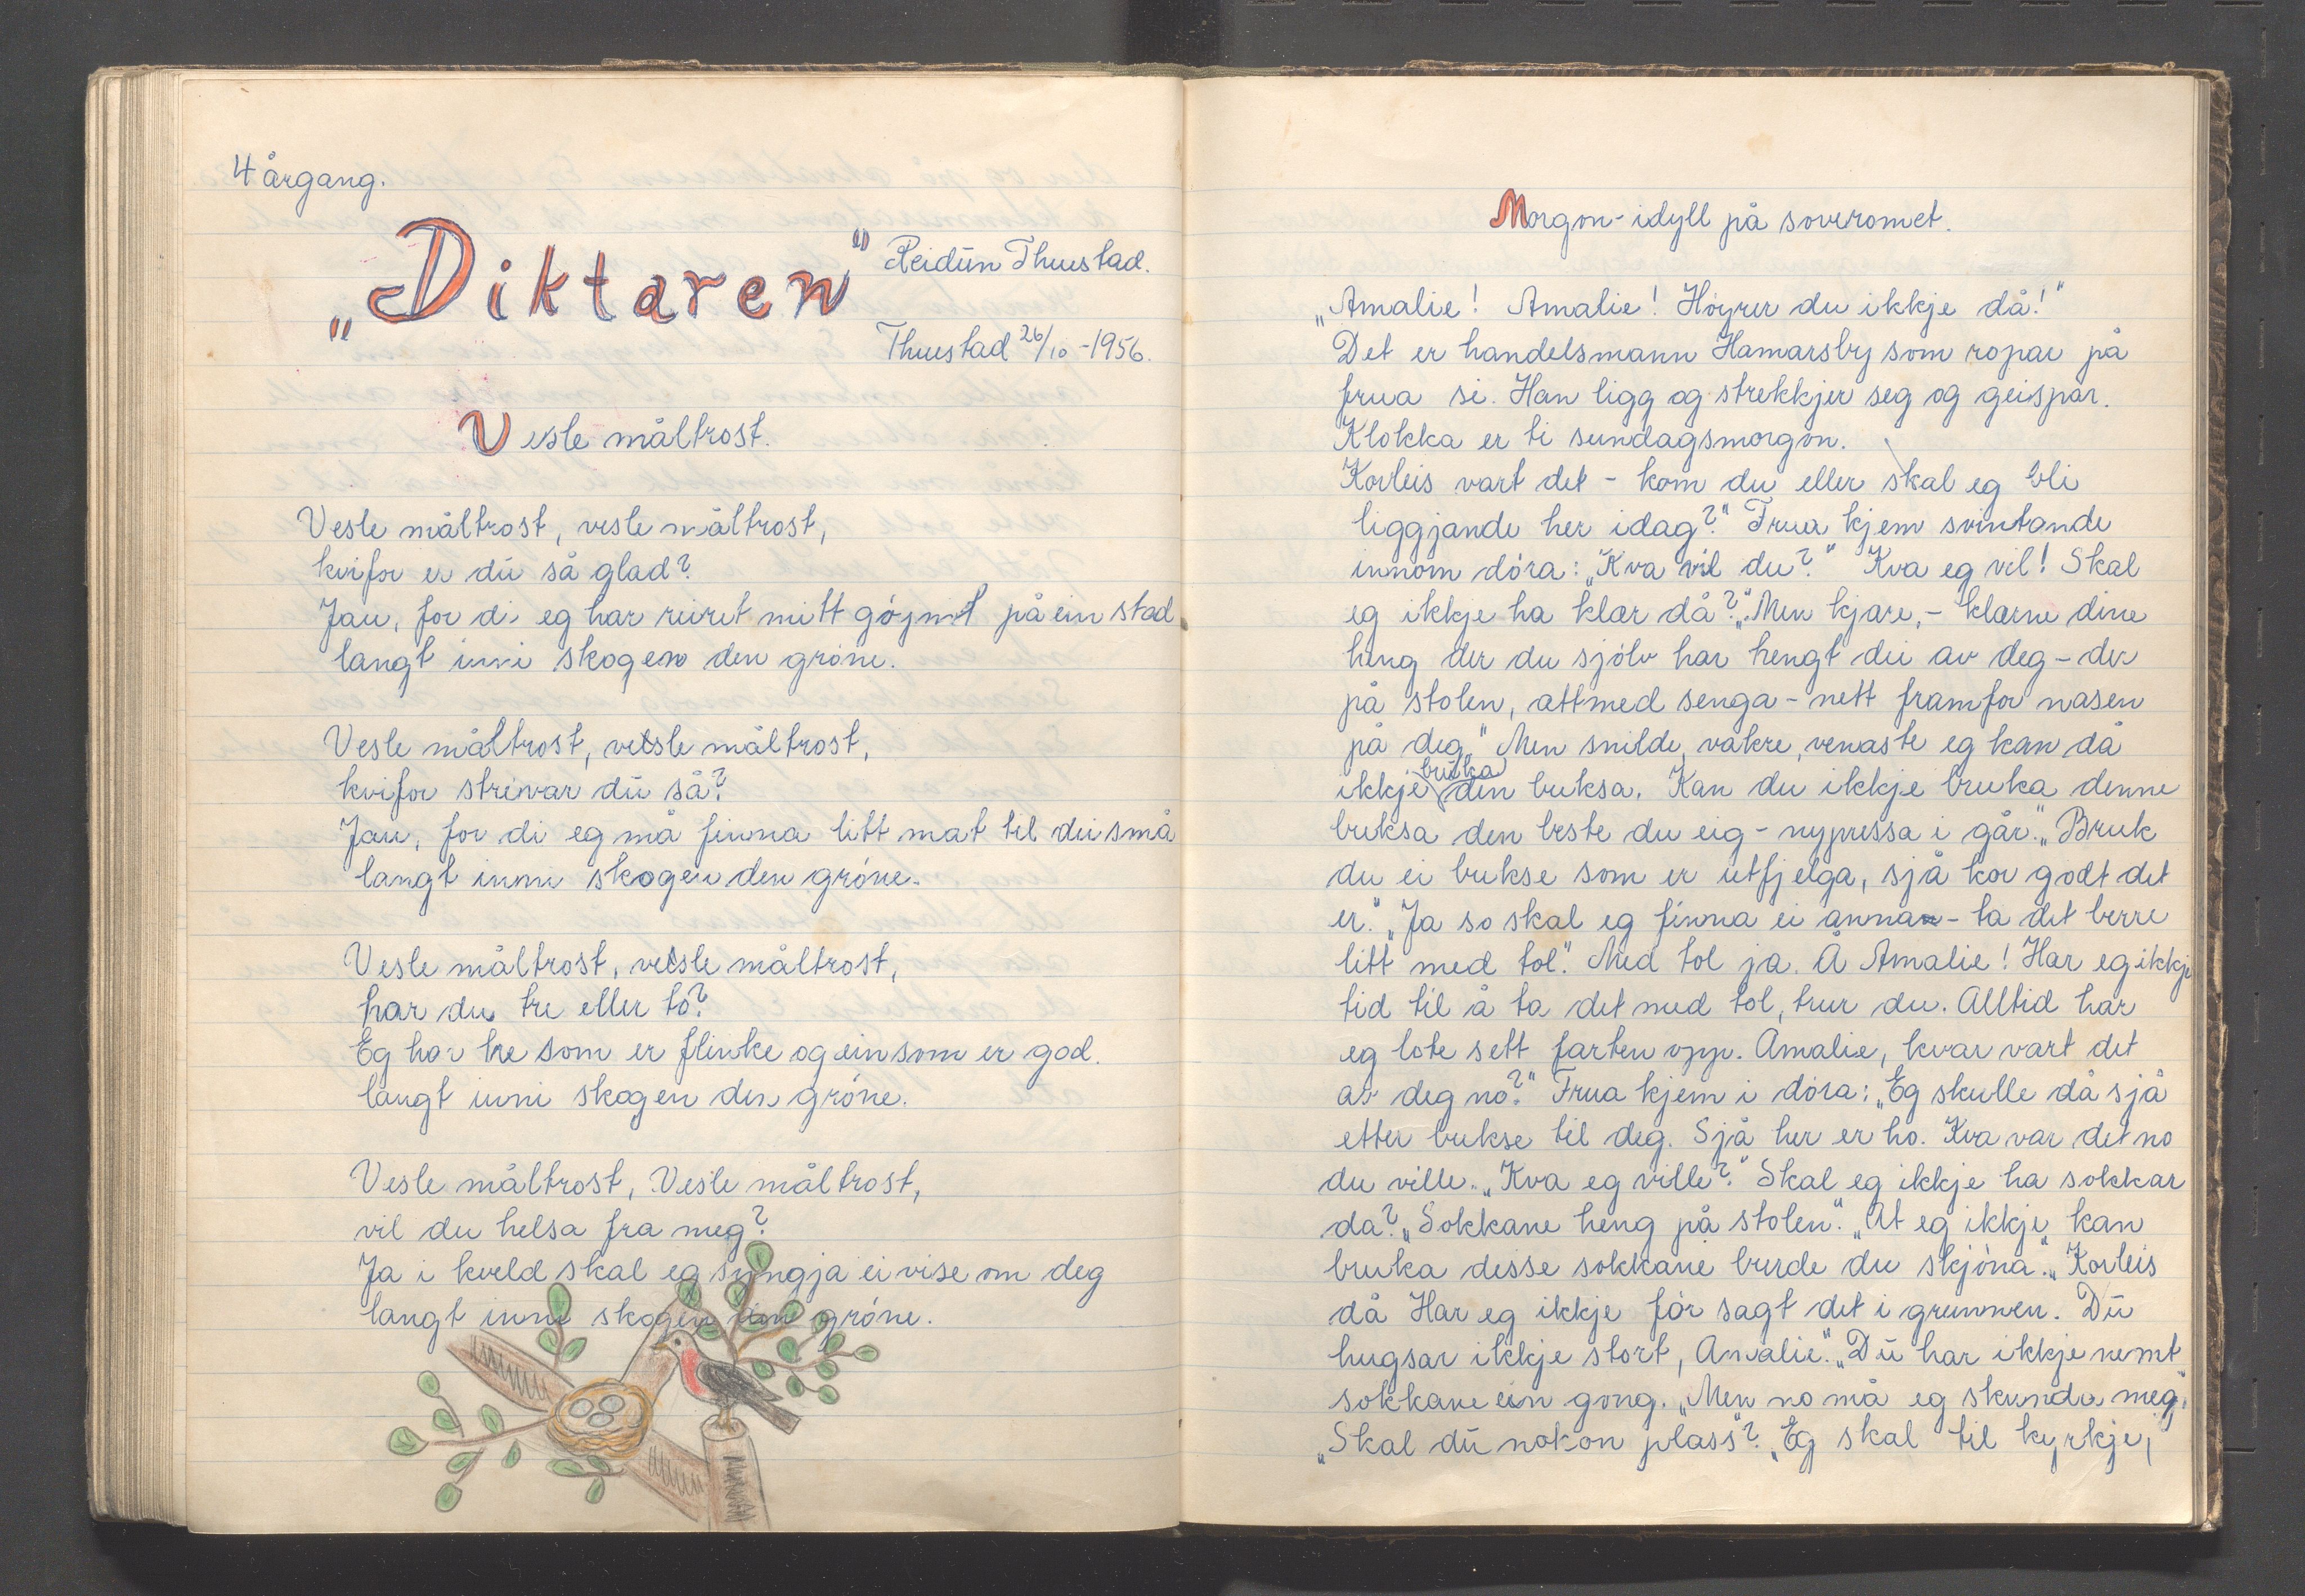 4 årgang.
„Diktaren"
Reidun Thuestad.
Thuestad 26/10 - 1956.
Vesle måltrost.
Vesle måltrost, vesle måltrost,
kvifor er du så glad?
Jau, for di eg har reiret mitt gøymt på ein stad
langt inni skogen den grøne.
Vesle måltrost, vetsle måltrost,
kvifor strevar du så?
Jau, for di eg må finna litt mat til dei små
langt inni skogen den grøne.
Vesle måltrost, vetsle måltrost,
har du tre eller to?
Eg har tre som er flinke og ein som er god.
langt inni skogen den grøne.
Vesle måltrost, Vesle måltrost,
vil du helsa fra meg?
Ja i kveld skal eg syngja ei vise om deg
langt inni skogen den grøne.
Morgon-idyll på soveromet.
„Amalie! Amalie! Høyrer du ikkje då!"
Det er handelsmann Hamarsby som ropar på
frua si. Han ligg og strekkjer seg og geispar.
Klokka er ti sundagsmorgon.
Korleis vart det - kom du eller skal eg bli
liggjande her idag?" Frua kjem svintande
innom døra: „Kva vil du?" Kva eg vil! Skal
eg ikkje ha klær då?" „Men kjære, - klærne dine
heng der du sjølv har hengt dei av deg - der
på stolen, attmed senga - nett framfor nasen
på deg." Men snilde, vakre, venaste eg kan då
ikkje bruka den buksa. Kan du ikkje bruka denne
buksa den beste du eig - nypressa i går." „Bruk
du ei bukse som er utfjelga, sjå kor godt det
er." „Ja so skal eg finna ei anna - ta det berre
litt med tol." Med tol ja. Å Amalie! Har eg ikkje
tid til å ta det med tol, trur du. Alltid har
eg lote sett farten opp. Amalie, kvar vart det
av deg no?" Frua kjem i døra: „Eg skulle då sjå
etter bukse til deg. Sjå her er ho. Kva var det no
du ville. „Kva eg ville?" Skal eg ikkje ha sokkar
da? „Sokkane heng på stolen". „At eg ikkje kan
bruka desse sokkane burde du skjøna". „Korleis
då Har eg ikkje før sagt det i grunnen. Du
hugsar ikkje stort, Amalie". „Du har ikkje nemt
sokkane ein gong. „Men no må eg skunda meg".
„Skal du nokon plass"? „Eg skal til kyrkje,